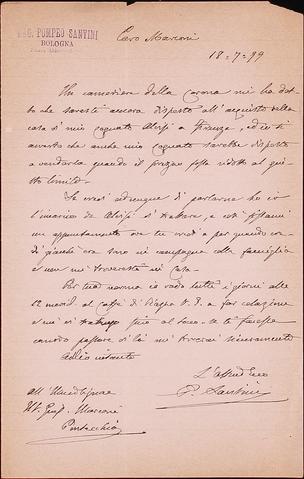 RAG. POMPEO SANTINI
BOLOGNA
Caro Marconi
18-7-99
Un cameriere della Corona mi ha det-
to che saresti ancora disposto all'acquisto della
casa di mio cognato Aloisi a Firenze, ed io ti
avverto che anche mio cognato sarebbe disposto
a venderla quando il prezzo fosse ridotto al giu-
sto limite.
Se credi adunque di parlarne ho io
l'incarico da Aloisi di trattare, e così fissami
un appuntamento ove tu credi e per quando cre-
di giacchè ora sono in campagna colla famiglia
e non mi troveresti in casa.
Per tua norma io vado tutti i giorni alle
12 merid. al caffè di Piazza V. E. a far colazione
e mi vi trattengo fino al tocco. Se ti facesse
comodo passare di là mi troverai sicuramente
Addio intanto
L'aff Amico
P. Santini
All'
Sig. Giuseppe Marconi
Pontecchio